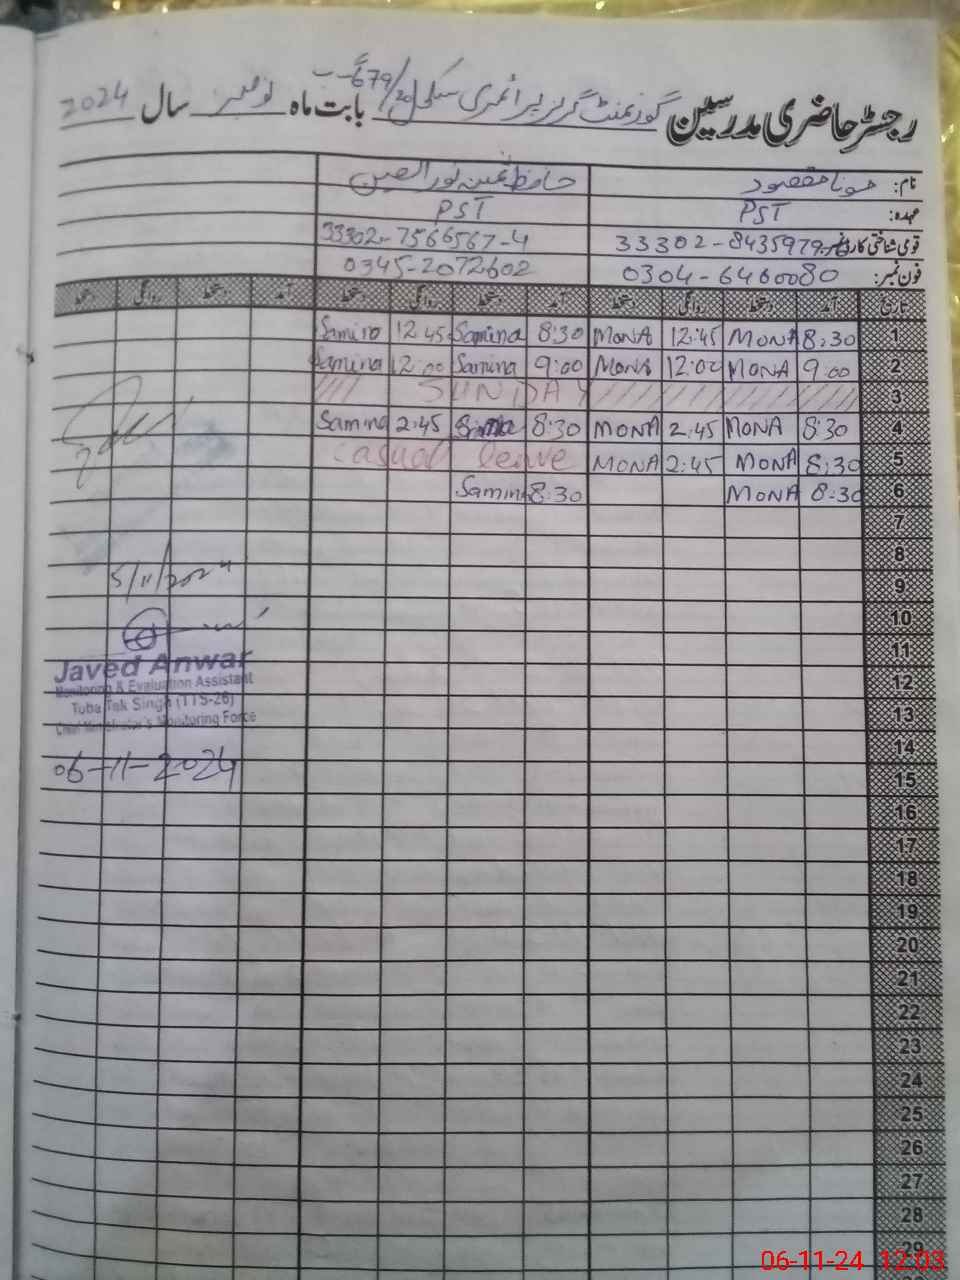 رجسٹر حاضری مدرسین گورنمنٹ گرلز پرائمری سکول 679/20 گ-ب بابت ماہ نومبر سال 2024
نام: مونا مقصود حافظ ثمینہ نور العین
عہدہ: PST PST
قومی شناختی کارڈ نمبر 33302-8435979 33302-7566567-4
فون نمبر: 0304-6460080 0345-2072602
تاریخ آمد دستخط روانگی دستخط آمد دستخط روانگی دستخط آمد دستخط روانگی دستخط
1 8:30 MONA 12:45 MONA 8:30 Samina 12:45 Samina
2 9:00 MONA 12:00 MONA 9:00 Samina 12:00 Samina
3 SUNDAY
4 8:30 MONA 2:45 MONA 8:30 2:45 Samina
5 8:30 MONA 2:45 MONA casual leave
6 8:30 MONA 8:30 Samina
7
8
9
10
11
12
13
14
15
16
17
18
19
20
21
22
23
24
25
26
27
28
29
5/11/2024
Javed Anwar
Monitoring & Evaluation Assistant
Toba Tek Singh (TTS-26)
Chief Minister's Monitoring Force
06-11-2024
06-11-24 12:03